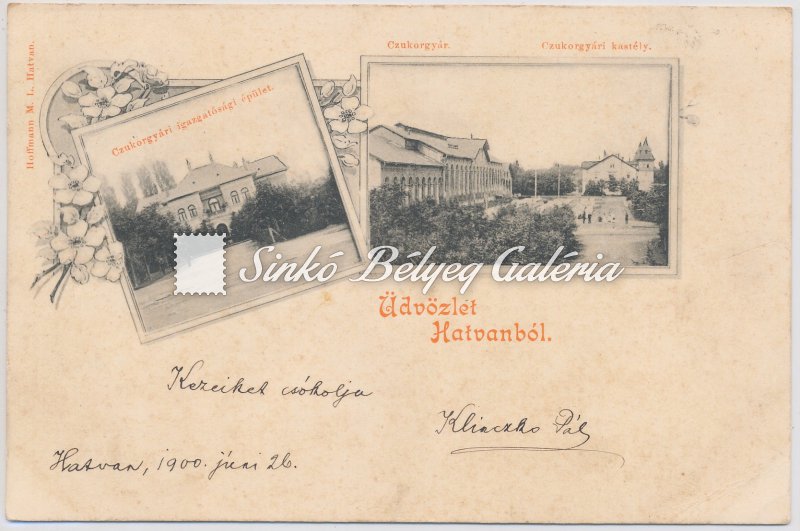 Hoffmann M. L., Hatvan.
Czukorgyári igazgatósági épület.
Czukorgyár.
Czukorgyári kastély.
Sinkó Bélyeg Galéria
Üdvözlet
Hatvanból.
Kezeiket csókolja
Klinczko Pál
Hatvan, 1900. júni 26.